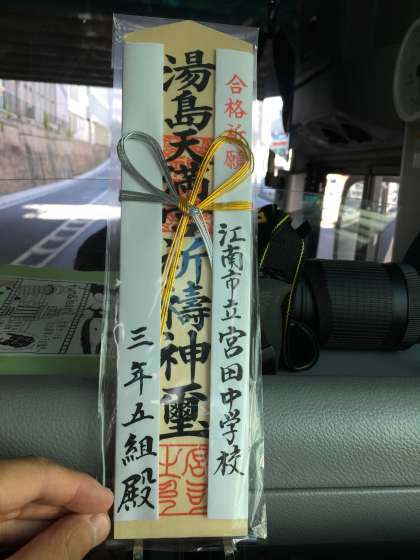 合格祈願
江南市立宮田中学校
湯島天満宮祈禱神璽
三年五組殿